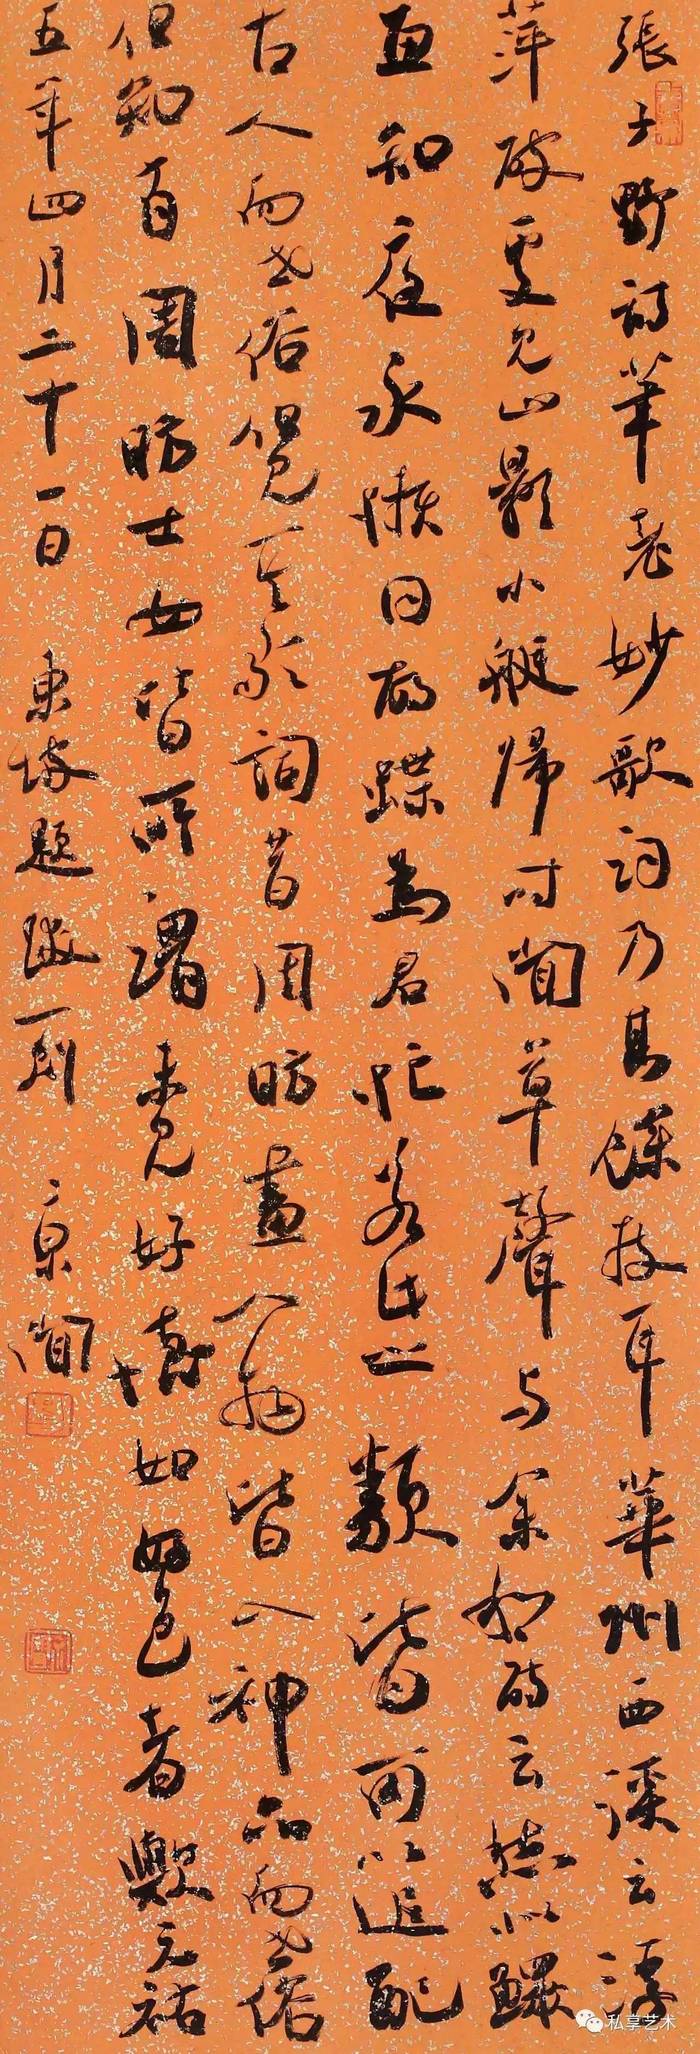 張子野詩筆老妙歌詞乃其餘技耳華州西溪云浮
萍破處見山影小艇歸時聞草聲与余和詩云愁似鰥
魚知夜永懶同胡蝶為君忙若此之類皆可以追配
古人而世俗但見其歌詞昔周昉畫人物皆入神品而世俗
但知有周昉士女皆所謂未見好德如好色者歟元祐
五年四月二十一日 東坡題跋一則 京聞
私享艺术